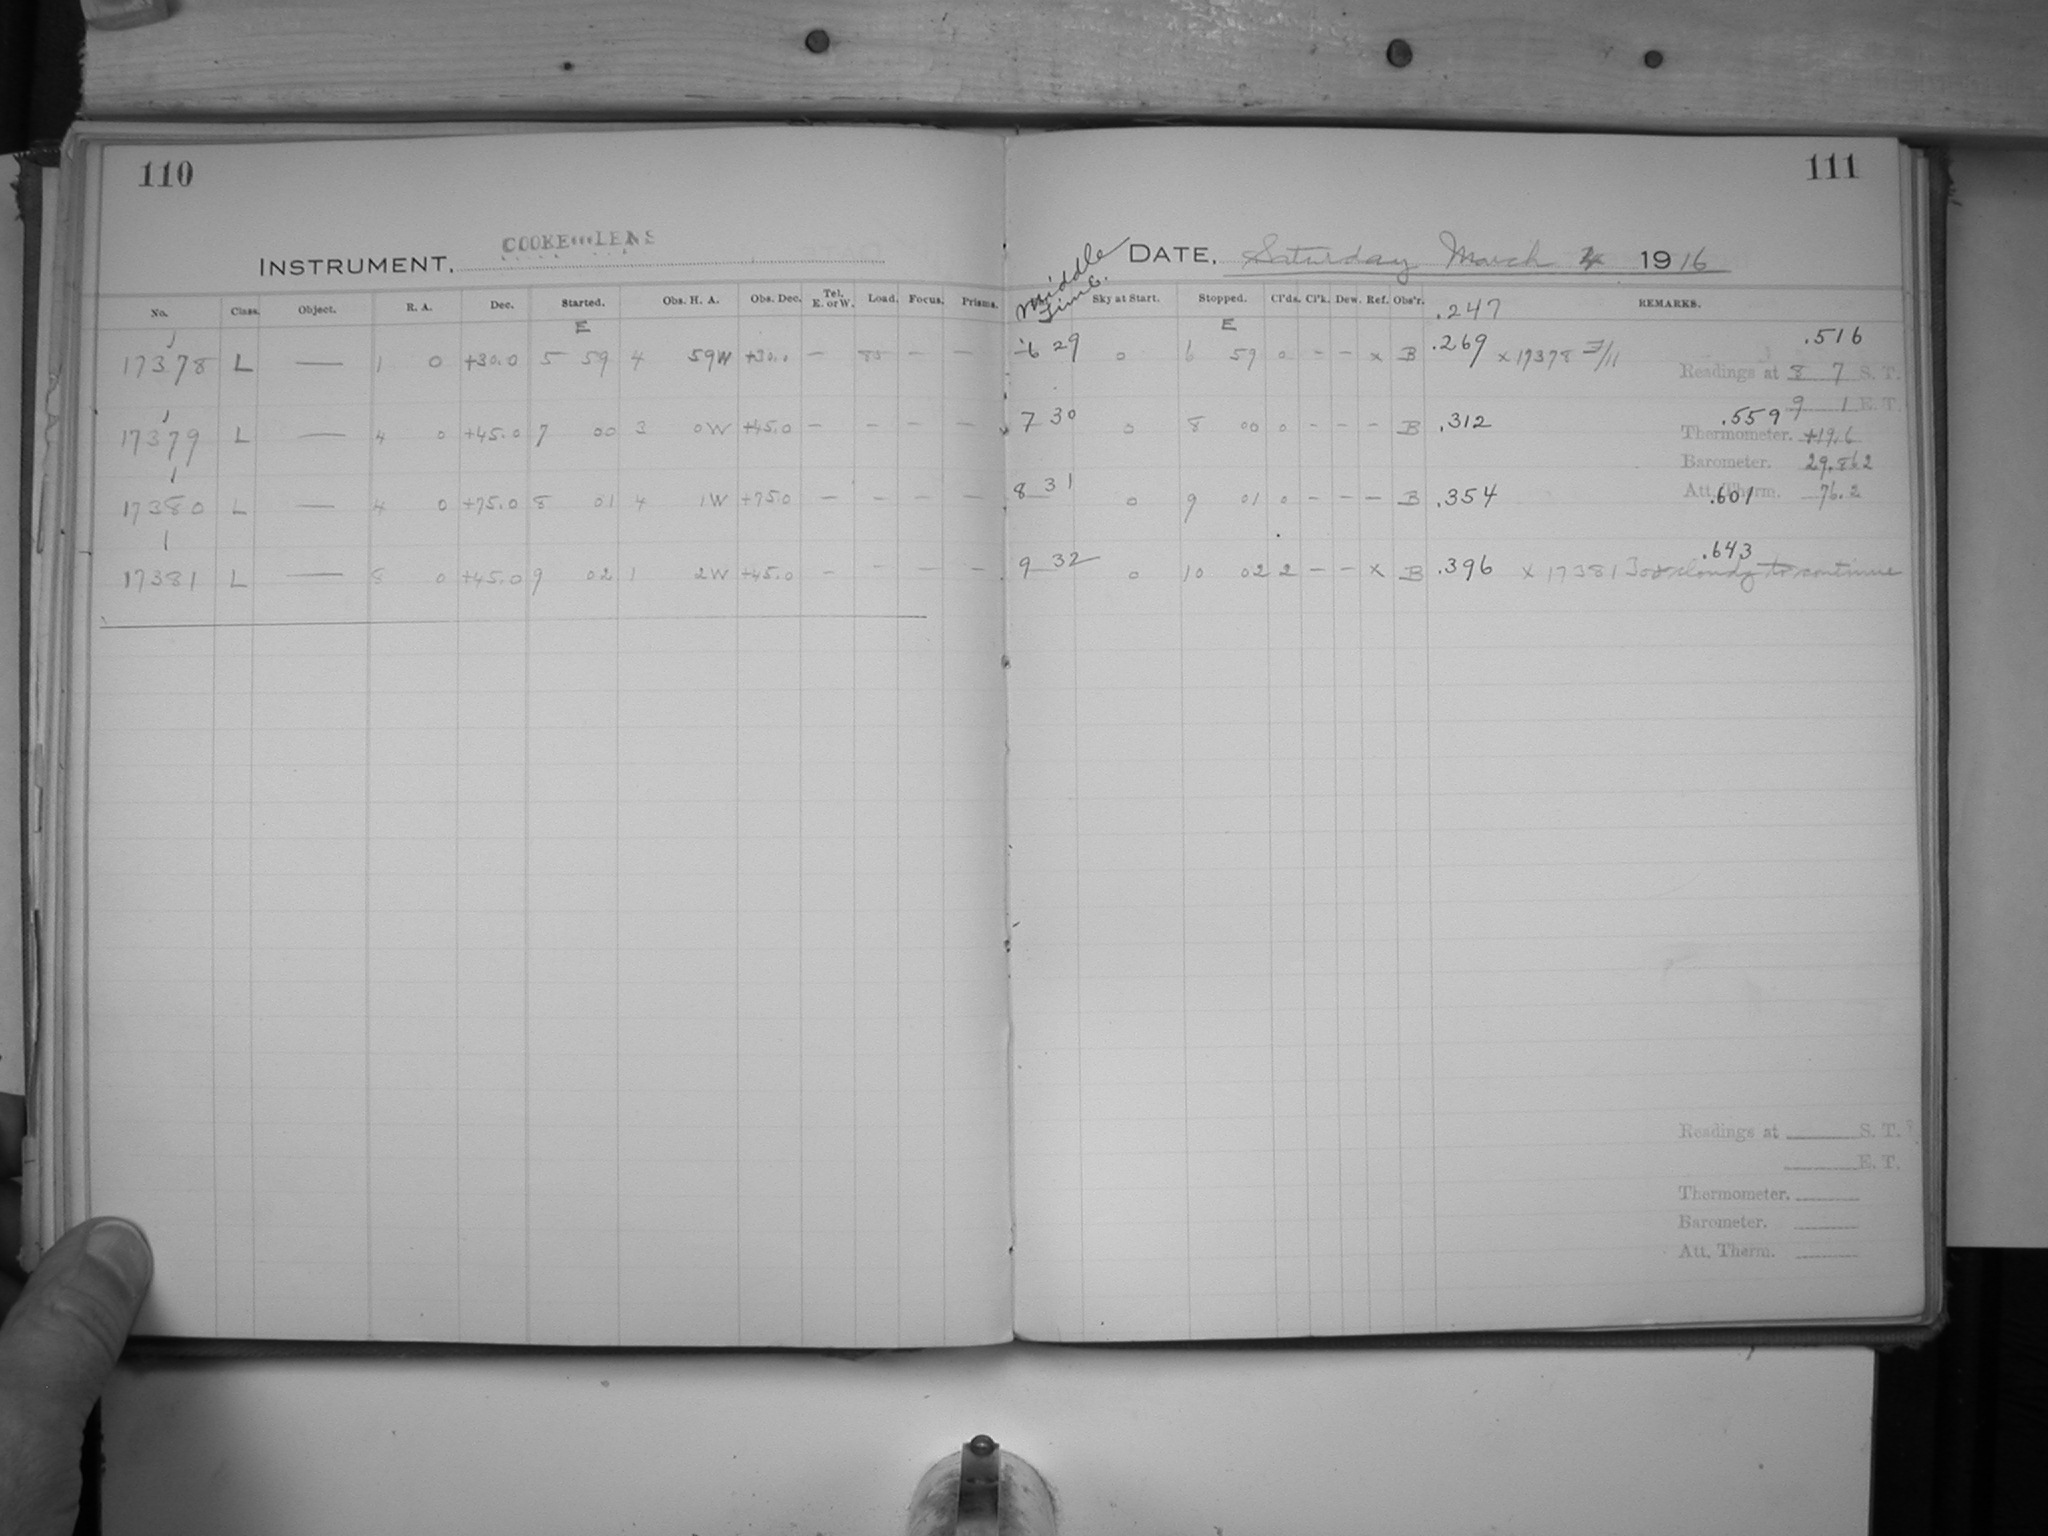 110
COOKE LENS
INSTRUMENT.
No. Class. Object. R. A. Dec. Started. Obs. H. A. Obs. Dec. Tel. E. or W. Load. Focus. Prisms.
E
17378 L — 1 0 +30.0 5 59 4 59W +30.0 — 85 — —
17379 L — 4 0 +45.0 7 00 3 0W +45.0 — — — —
17380 L — 4 0 +75.0 8 01 4 1W +75.0 — — — —
17381 L — 8 0 +45.0 9 02 1 2W +45.0 — — — —
111
DATE. Saturday March 4 1916
Middle
Time.
Sky at Start. Stopped. Cl'ds. Cl'k. Dew. Ref. Obs'r. REMARKS.
.247
E
6 29 0 6 59 0 — — x B .269 x 17378 3/11 .516
Readings at 8 7 S. T.
9 1 E. T.
7 30 0 8 00 0 — — — B .312 .559
Thermometer. +19.6
Barometer. 29.862
8 31 0 9 01 0 — — — B .354 .601
Att. Therm. 76.2
9 32 0 10 02 2 — — x B .396 x 17381 Too cloudy to continue .643
Readings at S. T.
E. T.
Thermometer.
Barometer.
Att. Therm.